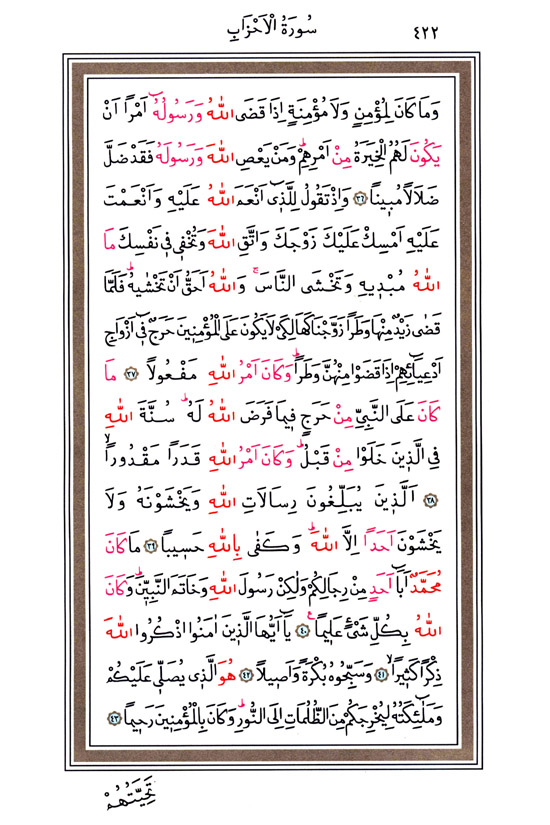 سُورَةُ الْاَحْزَابِ ٤٢٢
وَمَا كَانَ لِمُؤْمِنٍ وَلَا مُؤْمِنَةٍ اِذَا قَضَى اللّٰهُ وَرَسُولُهُٓ اَمْرًا اَنْ
يَكُونَ لَهُمُ الْخِيَرَةُ مِنْ اَمْرِهِمْۜ وَمَنْ يَعْصِ اللّٰهَ وَرَسُولَهُ فَقَدْ ضَلَّ
ضَلَالًا مُب۪ينًا ﴿٣٦﴾ وَاِذْ تَقُولُ لِلَّذ۪ٓي اَنْعَمَ اللّٰهُ عَلَيْهِ وَاَنْعَمْتَ
عَلَيْهِ اَمْسِكْ عَلَيْكَ زَوْجَكَ وَاتَّقِ اللّٰهَ وَتُخْف۪ي ف۪ي نَفْسِكَ مَا
اللّٰهُ مُبْد۪يهِ وَتَخْشَى النَّاسَۚ وَاللّٰهُ اَحَقُّ اَنْ تَخْشٰيهُۜ فَلَمَّا
قَضٰى زَيْدٌ مِنْهَا وَطَرًا زَوَّجْنَاكَهَا لِكَيْ لَا يَكُونَ عَلَى الْمُؤْمِن۪ينَ حَرَجٌ ف۪ٓي اَزْوَاجِ
اَدْعِيَٓائِهِمْ اِذَا قَضَوْا مِنْهُنَّ وَطَرًاۜ وَكَانَ اَمْرُ اللّٰهِ مَفْعُولًا ﴿٣٧﴾ مَا
كَانَ عَلَى النَّبِيِّ مِنْ حَرَجٍ ف۪يمَا فَرَضَ اللّٰهُ لَهُۜ سُنَّةَ اللّٰهِ
فِي الَّذ۪ينَ خَلَوْا مِنْ قَبْلُۜ وَكَانَ اَمْرُ اللّٰهِ قَدَرًا مَقْدُورًاۙ
﴿٣٨﴾ اَلَّذ۪ينَ يُبَلِّغُونَ رِسَالَاتِ اللّٰهِ وَيَخْشَوْنَهُ وَلَا
يَخْشَوْنَ اَحَدًا اِلَّا اللّٰهَۜ وَكَفٰى بِاللّٰهِ حَس۪يبًا ﴿٣٩﴾ مَا كَانَ
مُحَمَّدٌ اَبَٓا اَحَدٍ مِنْ رِجَالِكُمْ وَلٰكِنْ رَسُولَ اللّٰهِ وَخَاتَمَ النَّبِيّ۪نَۜ وَكَانَ
اللّٰهُ بِكُلِّ شَيْءٍ عَل۪يمًا۟ ﴿٤٠﴾ يَٓا اَيُّهَا الَّذ۪ينَ اٰمَنُوا اذْكُرُوا اللّٰهَ
ذِكْرًا كَث۪يرًاۙ ﴿٤١﴾ وَسَبِّحُوهُ بُكْرَةً وَاَص۪يلًا ﴿٤٢﴾ هُوَ الَّذ۪ي يُصَلّ۪ي عَلَيْكُمْ
وَمَلٰٓئِكَتُهُ لِيُخْرِجَكُمْ مِنَ الظُّلُمَاتِ اِلَى النُّورِۜ وَكَانَ بِالْمُؤْمِن۪ينَ رَح۪يمًا ﴿٤٣﴾
تَحِيَّتُهُمْ